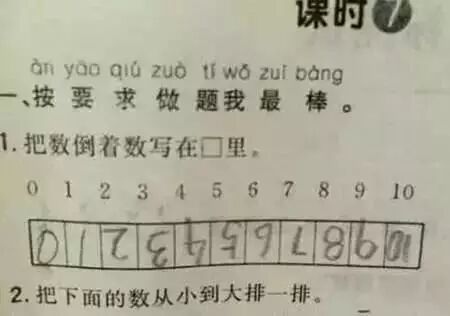 课时7
àn yāo qiú zuò tí wǒ zuì bàng
一、按要求做题我最棒。
1.把数倒着数写在□里。
0 1 2 3 4 5 6 7 8 9 10
0 1 2 3 4 5 6 7 8 9 10
2.把下面的数从小到大排一排。